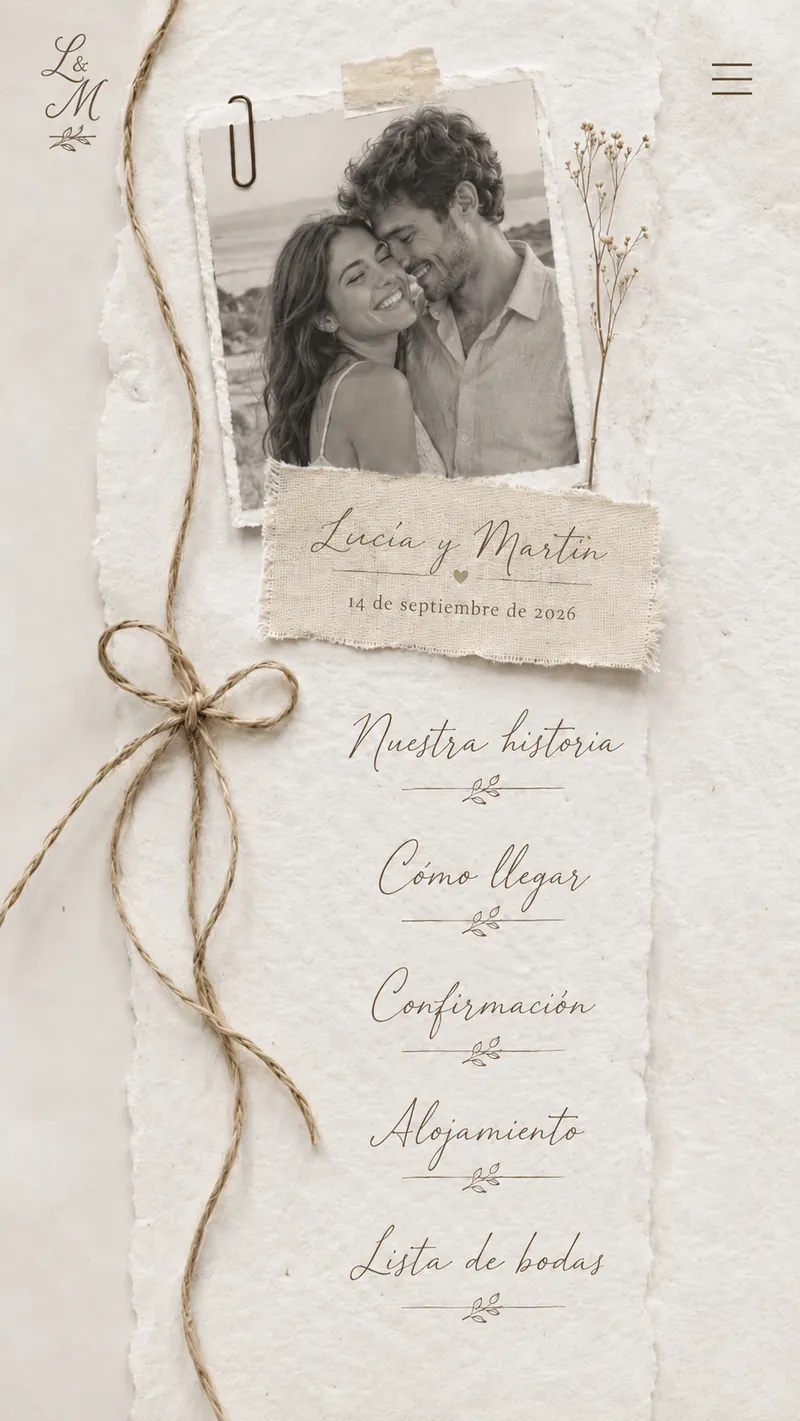 L&
M
Lucía y Martín
14 de septiembre de 2026
Nuestra historia
Cómo llegar
Confirmación
Alojamiento
Lista de bodas